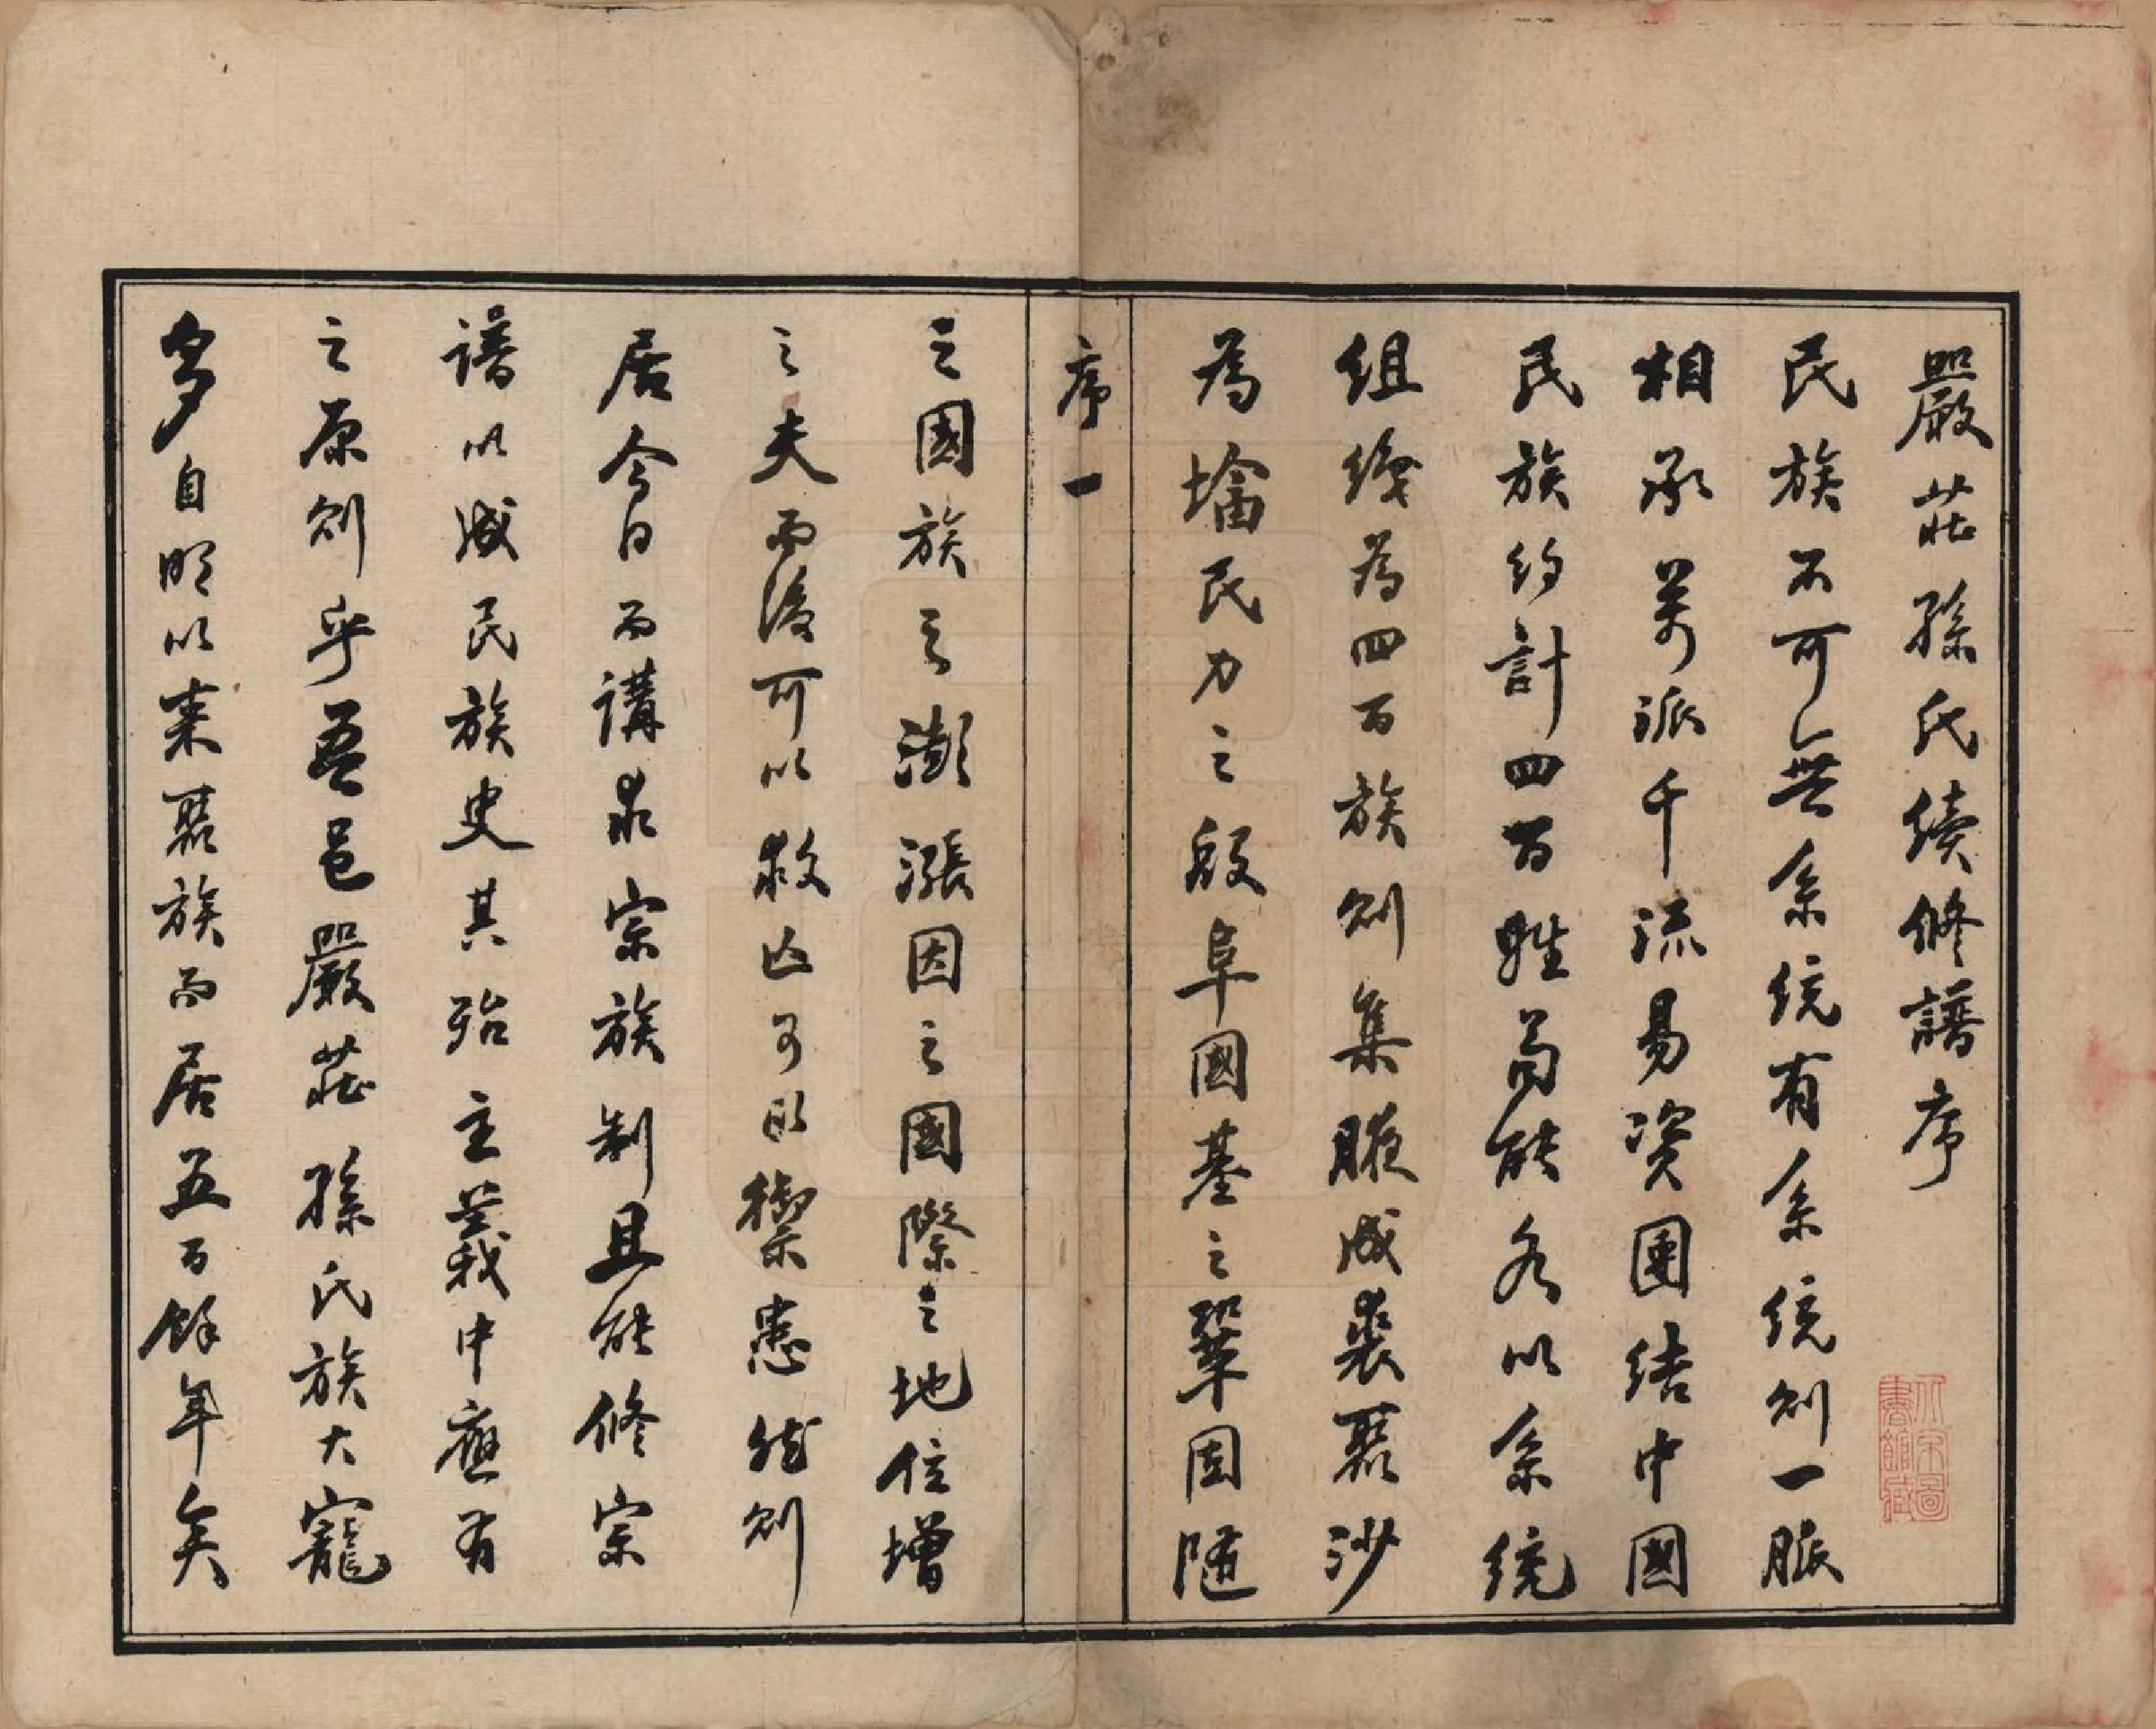 嚴莊孫氏續修譜序
民族不可無系統有系統則一脈
相承萬派千流易資團結中國
民族約計四百姓苟能各以系統
組織為四百族則集腋成裘聚沙
為墖民力之殷阜國基之鞏固隨
序一
之國族之澎漲因之國際之地位增
之夫而後可以救亡可以禦患然則
居今日而講求宗族制且能修宗
譜以成民族史其殆主義中應有
之原則乎吾邑嚴莊孫氏族大寵
多自明以來聚族而居五百餘年矣